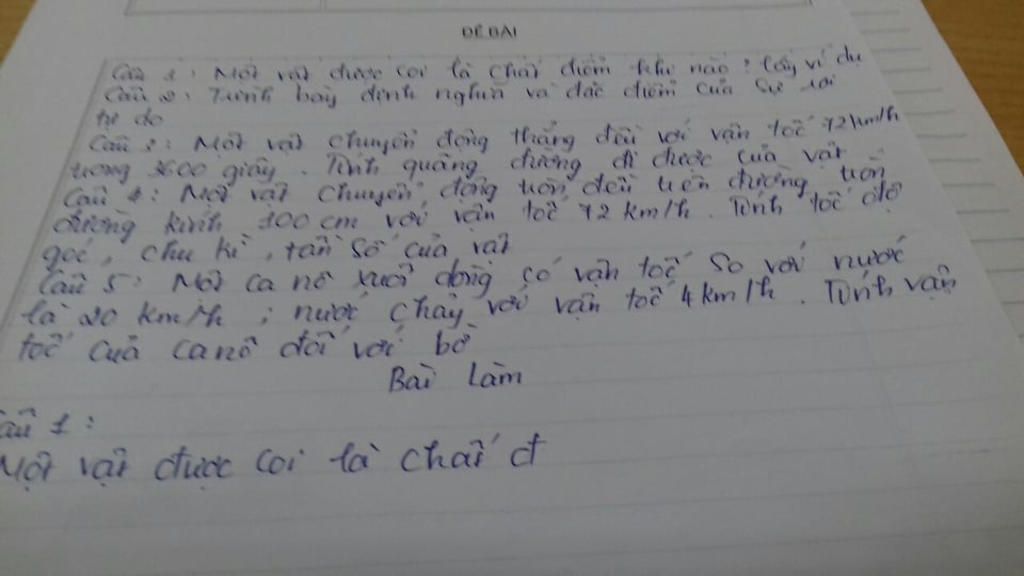 ĐỀ BÀI
Câu 1: Một vật được coi là chất điểm khi nào? lấy ví dụ
Câu 2: Trình bày định nghĩa và đặc điểm của sự rơi
tự do
Câu 3: Một vật chuyển động thẳng đều với vận tốc 72 km/h
trong 3600 giây. Tính quãng đường đi được của vật
Câu 4: Một vật chuyển động tròn đều trên đường tròn
đường kính 100 cm với vận tốc 72 km/h. Tính tốc độ
góc, chu kì, tần số của vật
Câu 5: Một ca nô xuôi dòng có vận tốc so với nước
là 20 km/h; nước chảy với vận tốc 4 km/h. Tính vận
tốc của ca nô đối với bờ
Bài làm
Câu 1:
Một vật được coi là chất đ